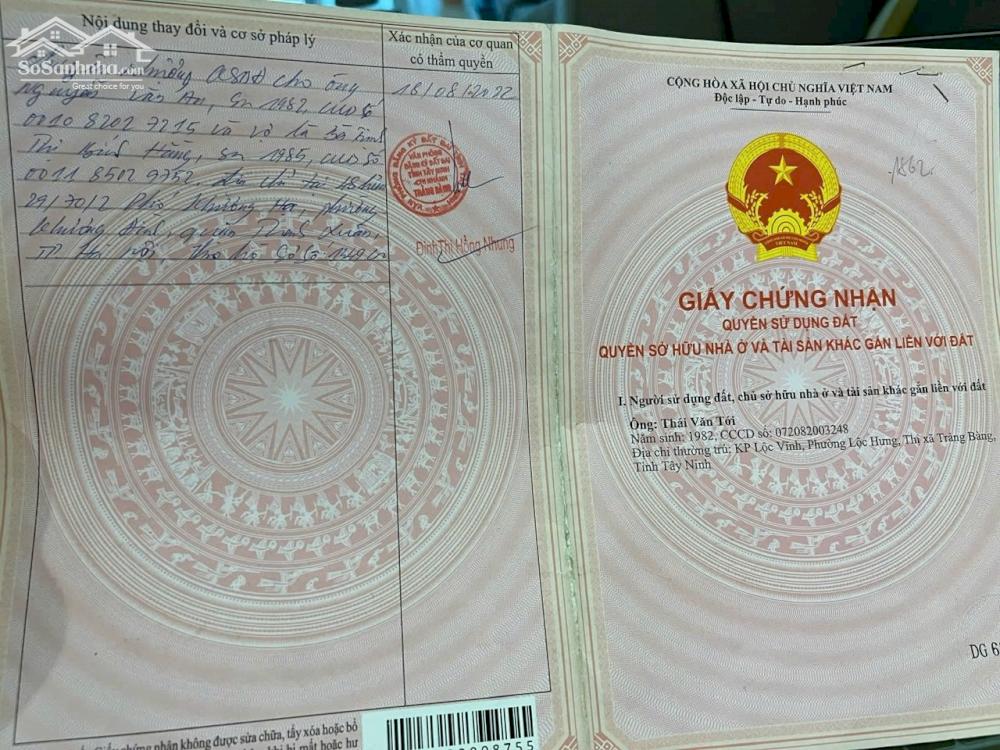 SoSanhnha.com
Great choice for life
Nội dung thay đổi và cơ sở pháp lý
Xác nhận của cơ quan
có thẩm quyền
QSDĐ cho ông
Nguyễn Văn An, sn 1982, CCCD số
001082027215 và vợ là Bà
Thị Hằng, sn 1985, CCCD số
001185029752. Địa chỉ tại
29/70/2 Phố Khương Hạ, phường
Khương Đình, quận Thanh Xuân,
TP Hà Nội, hồ sơ số
18/08/2022
VĂN PHÒNG
ĐĂNG KÝ ĐẤT ĐAI
TỈNH TÂY NINH
CHI NHÁNH
TRẢNG BÀNG
Đinh Thị Hồng Nhung
CỘNG HÒA XÃ HỘI CHỦ NGHĨA VIỆT NAM
Độc lập - Tự do - Hạnh phúc
1862
VIỆT NAM
GIẤY CHỨNG NHẬN
QUYỀN SỬ DỤNG ĐẤT
QUYỀN SỞ HỮU NHÀ Ở VÀ TÀI SẢN KHÁC GẮN LIỀN VỚI ĐẤT
I. Người sử dụng đất, chủ sở hữu nhà ở và tài sản khác gắn liền với đất
Ông: Thái Văn Tới
Năm sinh: 1982, CCCD số: 072082003248
Địa chỉ thường trú: KP Lộc Vĩnh, Phường Lộc Hưng, Thị xã Trảng Bàng,
Tỉnh Tây Ninh
DG 6
chứng nhận không được sửa chữa, tẩy xóa hoặc bổ
bị mất hoặc hư
08755